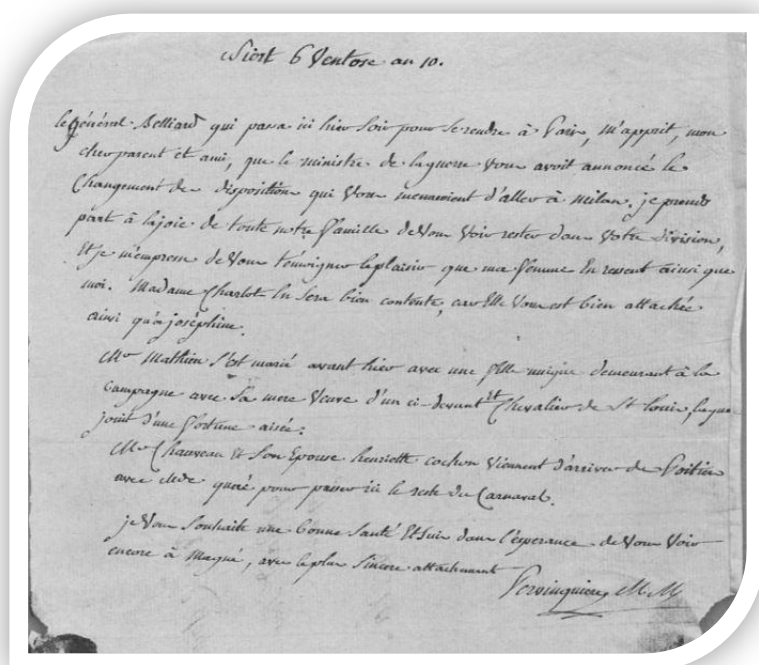 Niort 6 Ventose an 10.
le général Belliard qui passa ici hier soir pour se rendre à Paris, m'apprit, mon
cher parent et ami, que le ministre de la guerre vous avoit annoncé le
Changement de disposition qui vous menaçoient d'aller à milan. je prends
part à la joie de toute notre famille de vous voir rester dans votre Division,
Et je m'empresse de vous témoigner le plaisir que ma femme En ressent ainsi que
moi. Madame Charlot En Sera bien contente, car Elle vous est bien attachée
ainsi qu'à joséphine.
Mr Mathieu S'est marié avant hier avec une fille unique demeurant à la
Campagne avec Sa mere Veuve d'un ci-devant Chevalier de St Louis,
jouit d'une fortune aisée.
Mr Chauveau Et Son Epouse henriette cochon viennent d'arriver de Poitiers
avec pour passer ici le reste du Carnaval.
je vous souhaite une bonne santé Et suis dans l'éspérance de vous voir
encore à Magné, avec le plus sincere attachement